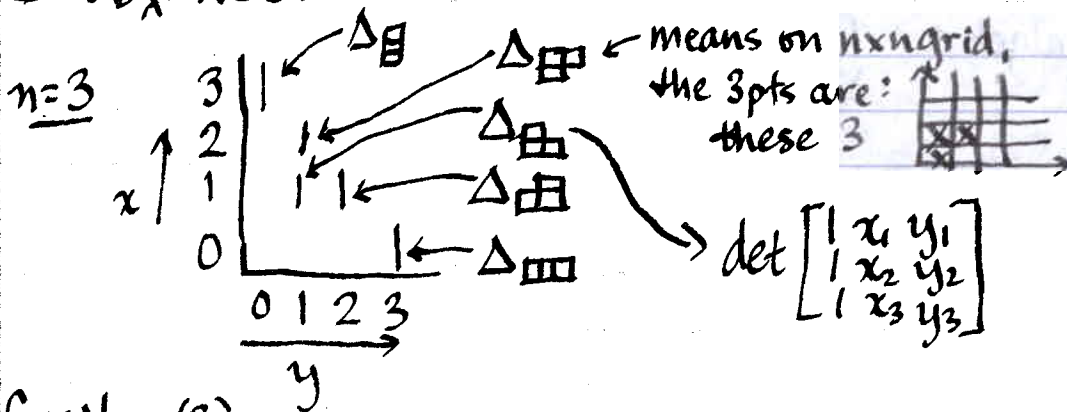 n=3
3 |
2 |
1 | |
0 |
0 1 2 3
x
y
Δ
Δ ← means on nxngrid,
the 3pts are:
these 3
x
x x
x
Δ
Δ
Δ
det [1 x₁ y₁
1 x₂ y₂
1 x₃ y₃]